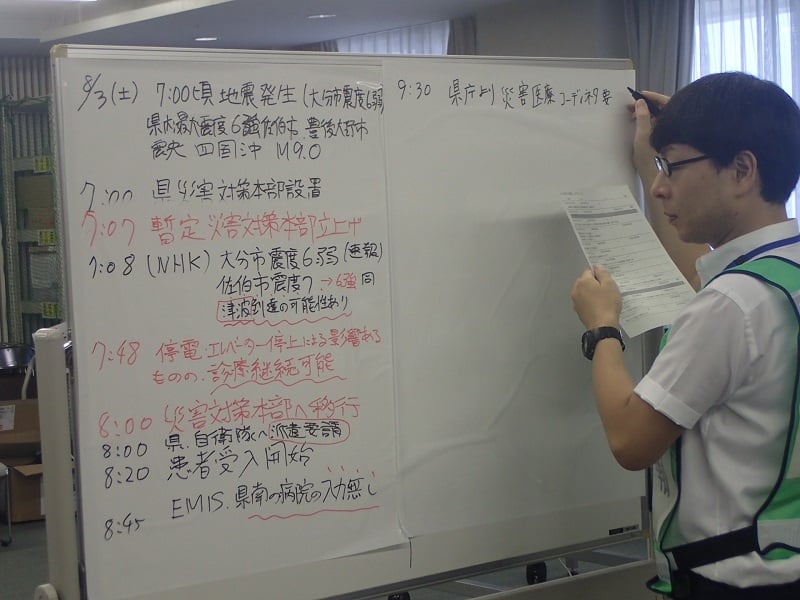 8/3(土) 7:00頃 地震発生(大分市震度6弱)
県内最大震度6強佐伯市、豊後大野市
震央 四国沖 M9.0
7:00 県災害対策本部設置
7:07 暫定災害対策本部立上げ
7:08 (NHK) 大分市震度6弱(速報)
佐伯市震度7→6強 同
津波到達の可能性あり
7:48 停電・エレベーター停止による影響ある
ものの、診療継続可能
8:00 災害対策本部へ移行
8:00 県、自衛隊へ派遣要請
8:20 患者受入開始
8:45 EMIS、県南の病院の入力無し
9:30 県庁より災害医療コーディネタ要